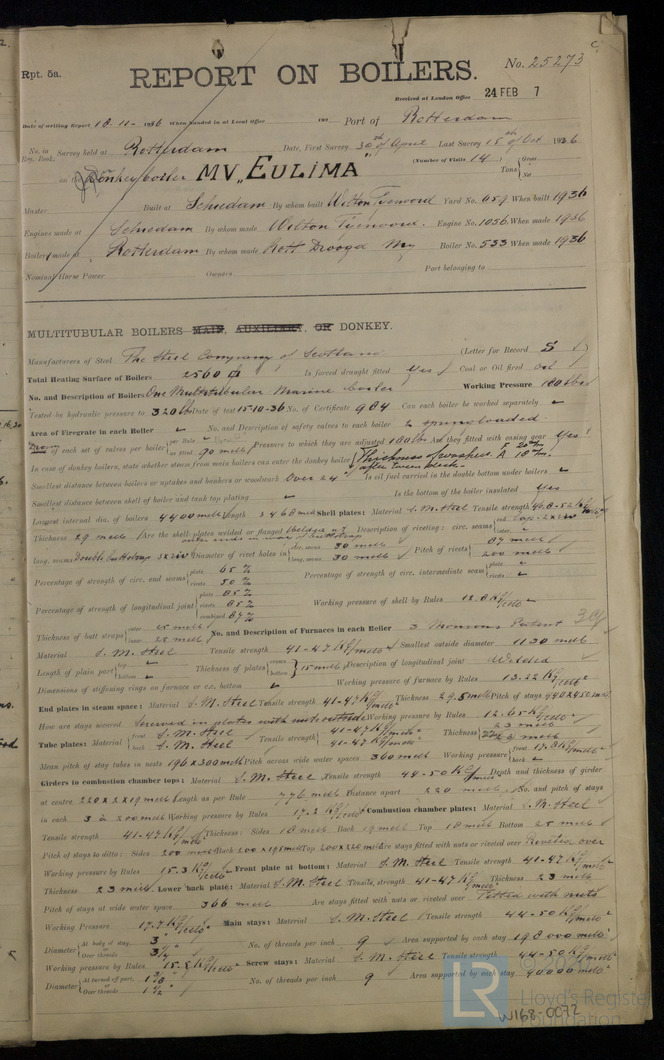 Rpt. 5a.
REPORT ON BOILERS.
No. 25273
Received at London Office 24 FEB 7
Date of writing Report 18.11-1936 When handed in at Local Office 193 Port of Rotterdam
No. in Reg. Book. Survey held at Rotterdam Date, First Survey 30th of April Last Survey 15th of Oct 1936
on the Donkey boiler MV. "EULIMA" (Number of Visits 14) Tons Gross Net
Master Built at Schiedam By whom built Wilton Fijenoord Yard No. 659 When built 1936
Engines made at Schiedam By whom made Wilton Fijenoord. Engine No. 1056 When made 1936
Boilers made at Rotterdam By whom made Rott Droogd My Boiler No. 533 When made 1936
Nominal Horse Power Owners Port belonging to
MULTITUBULAR BOILERS MAIN, AUXILIARY, OR DONKEY.
Manufacturers of Steel The Steel Company of Scotland (Letter for Record S )
Total Heating Surface of Boilers 2560 Is forced draught fitted Yes Coal or Oil fired oil
No. and Description of Boilers One Multitubular Marine boiler Working Pressure 180 lbs
Tested by hydraulic pressure to 320 lbs Date of test 15-10-36 No. of Certificate 984 Can each boiler be worked separately
Area of Firegrate in each Boiler No. and Description of safety valves to each boiler 2 springloaded
of each set of valves per boiler per Rule as fitted 90 mells Pressure to which they are adjusted 180 lbs Are they fitted with easing gear Yes
In case of donkey boilers, state whether steam from main boilers can enter the donkey boiler
Smallest distance between boilers or uptakes and bunkers or woodwork Over 24" Is oil fuel carried in the double bottom under boilers
Smallest distance between shell of boiler and tank top plating Is the bottom of the boiler insulated Yes
Largest internal dia. of boilers 4400 mells Length 3468 mells Shell plates: Material S.M. Steel Tensile strength
Thickness 29 mells Are the shell plates welded or flanged Description of riveting: circ. seams end
long. seams Double buttstrap Diameter of rivet holes in circ. seams 30 mells long. seams 30 mells Pitch of rivets 200 mells
Percentage of strength of circ. end seams plate 65 % rivets 50 % Percentage of strength of circ. intermediate seam plate rivets
Percentage of strength of longitudinal joint plate 85 % rivets 85 % combined 87 % Working pressure of shell by Rules 12.8 Kg/cells²
Thickness of butt straps outer inner No. and Description of Furnaces in each Boiler 3 Morisons Patent
Material S.M. Steel Tensile strength 41-47 Kg/mells² Smallest outside diameter 1130 mells
Length of plain part top bottom Thickness of plates crown bottom 15 mells Description of longitudinal joint Welded
Dimensions of stiffening rings on furnace or c.c. bottom Working pressure of furnace by Rules 13.22 Kg/cells²
End plates in steam space: Material S.M. Steel Tensile strength 41-47 Kg/mells² Thickness 29.5 mells Pitch of stays 440x450 mells
How are stays secured Screwed in plates with nuts outside Working pressure by Rules 12.65 Kg/cells²
Tube plates: Material front S.M. Steel back S.M. Steel Tensile strength 41-47 Kg/mells² 41-47 Kg/mells² Thickness 23 mells 23 mells
Mean pitch of stay tubes in nests 196x300 mells Pitch across wide water spaces 360 mells Working pressure front 17.3 Kg/mells² back
Girders to combustion chamber tops: Material S.M. Steel Tensile strength 44-50 Kg/mells Depth and thickness of girder
at centre 220x2x19 mells Length as per Rule 776 mells Distance apart 220 mells No. and pitch of stays
in each 3 à 200 mells Working pressure by Rules 17.2 Kg/cells² Combustion chamber plates: Material S.M. Steel
Tensile strength 41-47 Kg/mells² Thickness: Sides 18 mells Back 19 mells Top 18 mells Bottom 25 mells
Pitch of stays to ditto: Sides 200 mells Back 200x195 mells Top 200x220 mells Are stays fitted with nuts or riveted over Riveted over
Working pressure by Rules 15.3 Kg/cells² Front plate at bottom: Material S.M. Steel Tensile strength 41-47 Kg/mells²
Thickness 23 mells Lower back plate: Material S.M. Steel Tensile strength 41-47 Kg/mells² Thickness 23 mells
Pitch of stays at wide water space 366 mells Are stays fitted with nuts or riveted over Fitted with nuts
Working Pressure 17.7 Kg/cells² Main stays: Material S.M. Steel Tensile strength 44-50 Kg/mells²
Diameter At body of stay 3" Over threads 3¼" No. of threads per inch 9 Area supported by each stay 198000 mells²
Working pressure by Rules 15.5 Kg/cells² Screw stays: Material S.M. Steel Tensile strength 44-50 Kg/mells²
Diameter At turned off part Over threads No. of threads per inch 9 Area supported by each stay 40000 mells²
LR
Lloyd's Register
Foundation
W168-0072